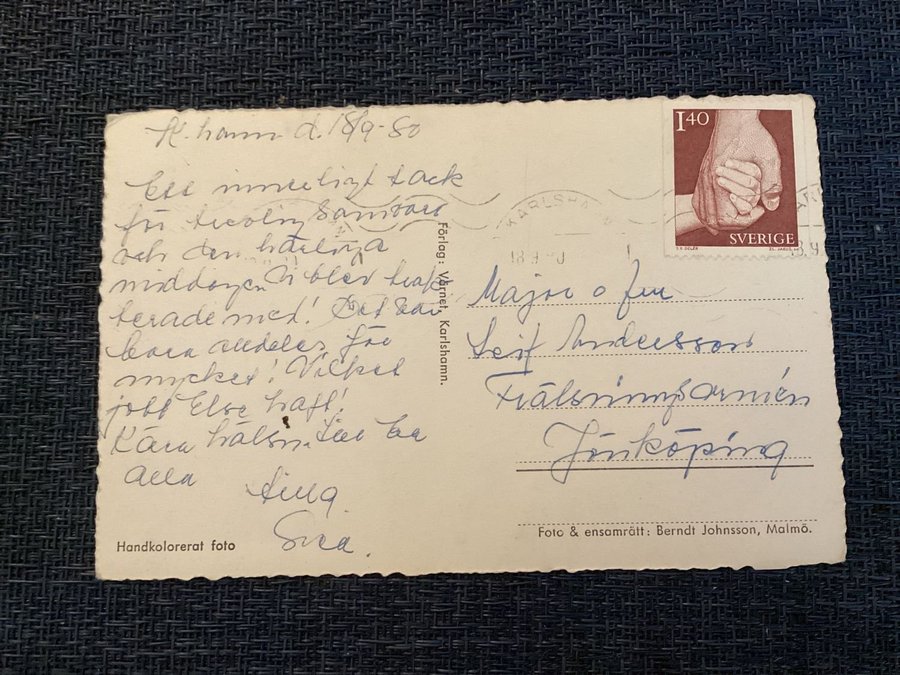 K-hamn d. 18/9-80
Ett innerligt tack
för trevlig samvaro
och den härliga
middagen Vi blev trak-
terade med! Det var
bara alldeles för
mycket! Vilket
jobb Else haft!
Kära hälsn. till Er
alla
Svea.
Handkolorerat foto
Förlag: Värnet, Karlshamn.
1 40
SVERIGE
KARLSHAMN
Major o fru
Leif Andersson
Frälsningsarmén
Jönköping
Foto & ensamrätt: Berndt Johnsson, Malmö.